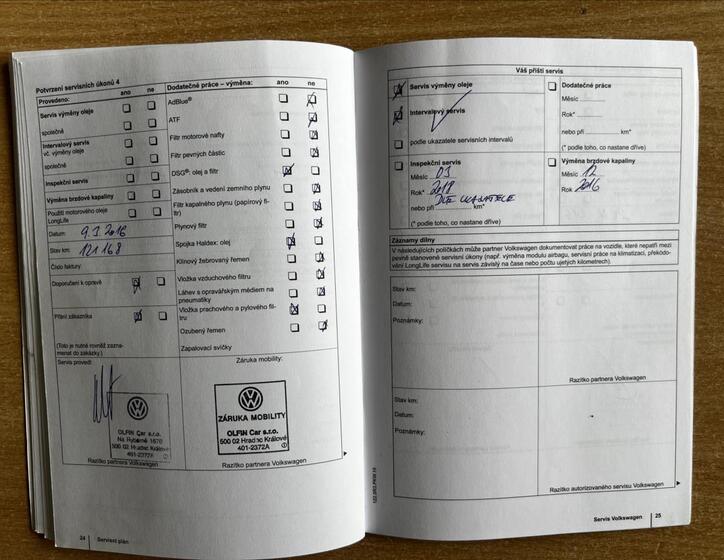 Potvrzení servisních úkonů 4
Provedeno: ano ne
Servis výměny oleje
společně
Intervalový servis
vč. výměny oleje
společně
Inspekční servis
Výměna brzdové kapaliny
Použití motorového oleje
LongLife
Datum: 9.3.2016
Stav km: 121 168
Číslo faktury:
Doporučení k opravě
Přání zákazníka
(Toto je nutné rovněž zazna-
menat do zakázky.)
Servis provedl:
OLFIN Car s.r.o.
Na Rybárně 1670
500 02 Hradec Králové
401-2372A
Razítko partnera Volkswagen
Dodatečné práce – výměna: ano ne
AdBlue®
ATF
Filtr motorové nafty
Filtr pevných částic
DSG®: olej a filtr
Zásobník a vedení zemního plynu
Filtr kapalného plynu (papírový fi-
ltr)
Plynový filtr
Spojka Haldex: olej
Klínový žebrovaný řemen
Vložka vzduchového filtru
Láhev s opravárským médiem na
pneumatiky
Vložka prachového a pylového fil-
tru
Ozubený řemen
Zapalovací svíčky
Záruka mobility:
ZÁRUKA MOBILITY
OLFIN Car s.r.o.
500 02 Hradec Králové
401-2372A
Razítko partnera Volkswagen
24 Servisní plán
Váš příští servis
Servis výměny oleje
Intervalový servis
podle ukazatele servisních intervalů
Dodatečné práce
Měsíc
Rok*
nebo při km*
(* podle toho, co nastane dříve)
Inspekční servis
Měsíc 03
Rok* 2018
DLE UKAZATELE
nebo při km*
(* podle toho, co nastane dříve)
Výměna brzdové kapaliny
Měsíc 12
Rok 2016
Záznamy dílny
V následujících políčkách může partner Volkswagen dokumentovat práce na vozidle, které nepatří mezi
pevně stanovené servisní úkony (např. výměna modulu airbagu, servisní práce na klimatizaci, překódo-
vání LongLife servisu na servis závislý na čase nebo počtu ujetých kilometrech).
Stav km:
Datum:
Poznámky:
Razítko partnera Volkswagen
Stav km:
Datum:
Poznámky:
Razítko autorizovaného servisu Volkswagen
Servis Volkswagen 25